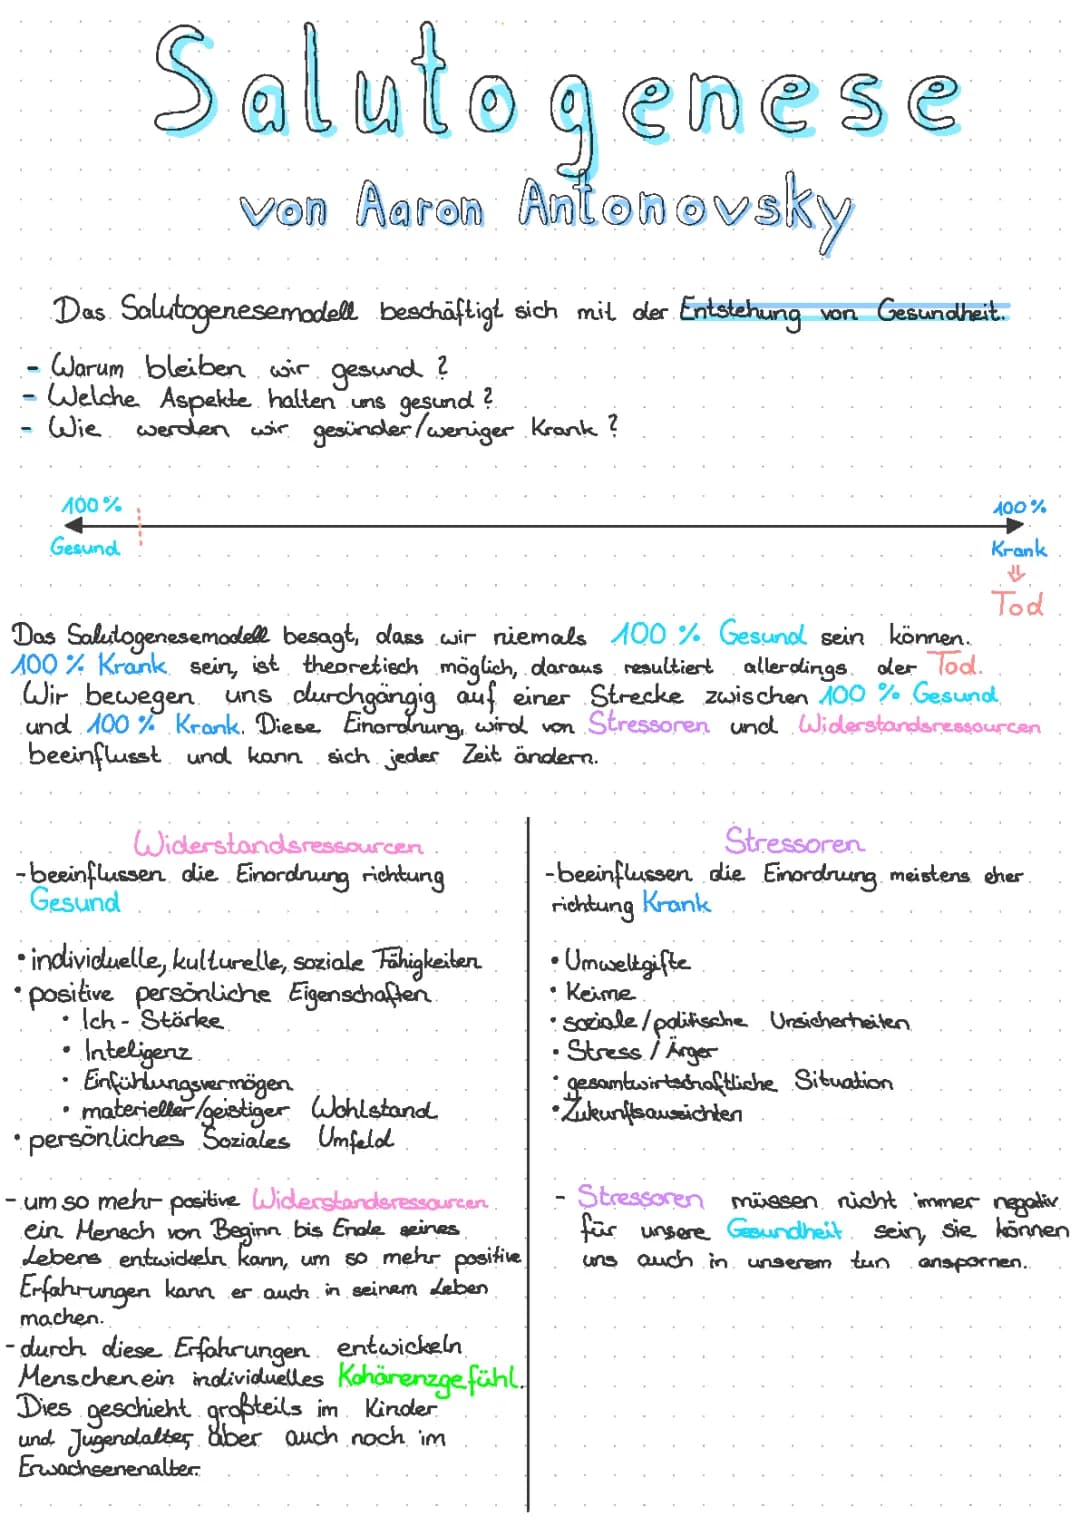 Salutogenese
von Aaron Antonovsky
Das Salutogenesemodell beschäftigt sich mit der Entstehung von Gesundheit.
- Warum bleiben wir gesund?
- Welche Aspekte halten uns gesund?
- Wie werden wir gesünder/weniger Krank?
100% 100%
Gesund Krank
⇓
Tod
Das Salutogenesemodell besagt, dass wir niemals 100 % Gesund sein können.
100 % Krank sein, ist theoretisch möglich, daraus resultiert allerdings der Tod.
Wir bewegen uns durchgängig auf einer Strecke zwischen 100 % Gesund
und 100 % Krank. Diese Einordnung, wird von Stressoren und Widerstandsressourcen
beeinflusst und kann sich jeder Zeit ändern.
Widerstandsressourcen
-beeinflussen die Einordnung richtung
Gesund
• individuelle, kulturelle, soziale Fähigkeiten
• positive persönliche Eigenschaften
• Ich - Stärke
• Inteligenz
• Einfühlungsvermögen
• materieller/geistiger Wohlstand
• persönliches Soziales Umfeld
- um so mehr positive Widerstandsressourcen
ein Mensch von Beginn bis Ende seines
Lebens entwickeln kann, um so mehr positive
Erfahrungen kann er auch in seinem Leben
machen.
- durch diese Erfahrungen entwickeln
Menschen ein individuelles Kohärenzgefühl.
Dies geschieht großteils im Kinder
und Jugendalter, aber auch noch im
Erwachsenenalter.
Stressoren
-beeinflussen die Einordnung meistens eher
richtung Krank
• Umweltgifte
• Keime
• soziale/politische Unsicherheiten
• Stress / Ärger
• gesamtwirtschaftliche Situation
• Zukunftsaussichten
- Stressoren müssen nicht immer negativ
für unsere Gesundheit sein, sie können
uns auch in unserem tun anspornen.